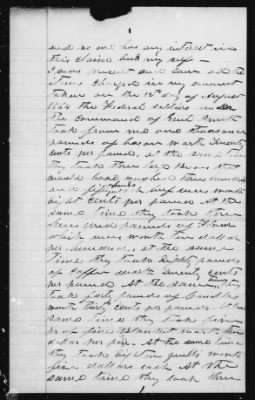 and no one has any interest in
this claim but my self —
I was present and saw all the
items charged in my account
taken on the 12th day of August
1864 the Federal soldiers under
the command of Genl Smith
took from me one thousand
pounds of bacon worth Twenty
cents per pound, at the same time
they took three
hundred
and fifty worth
eight cents per pound at the
same time they took three
hundred pounds of flour
which were worth ten dollars
per hundred, at the same
time they took eight pounds
of coffee worth seventy cents
per pound at the same time they
took forty pounds of candles
worth thirty cents per pound the
same time they took
pr of fine blankets worth ten
dollars per pair. At the same time
they took eighteen quilts worth
five dollars each At the
same time they took three